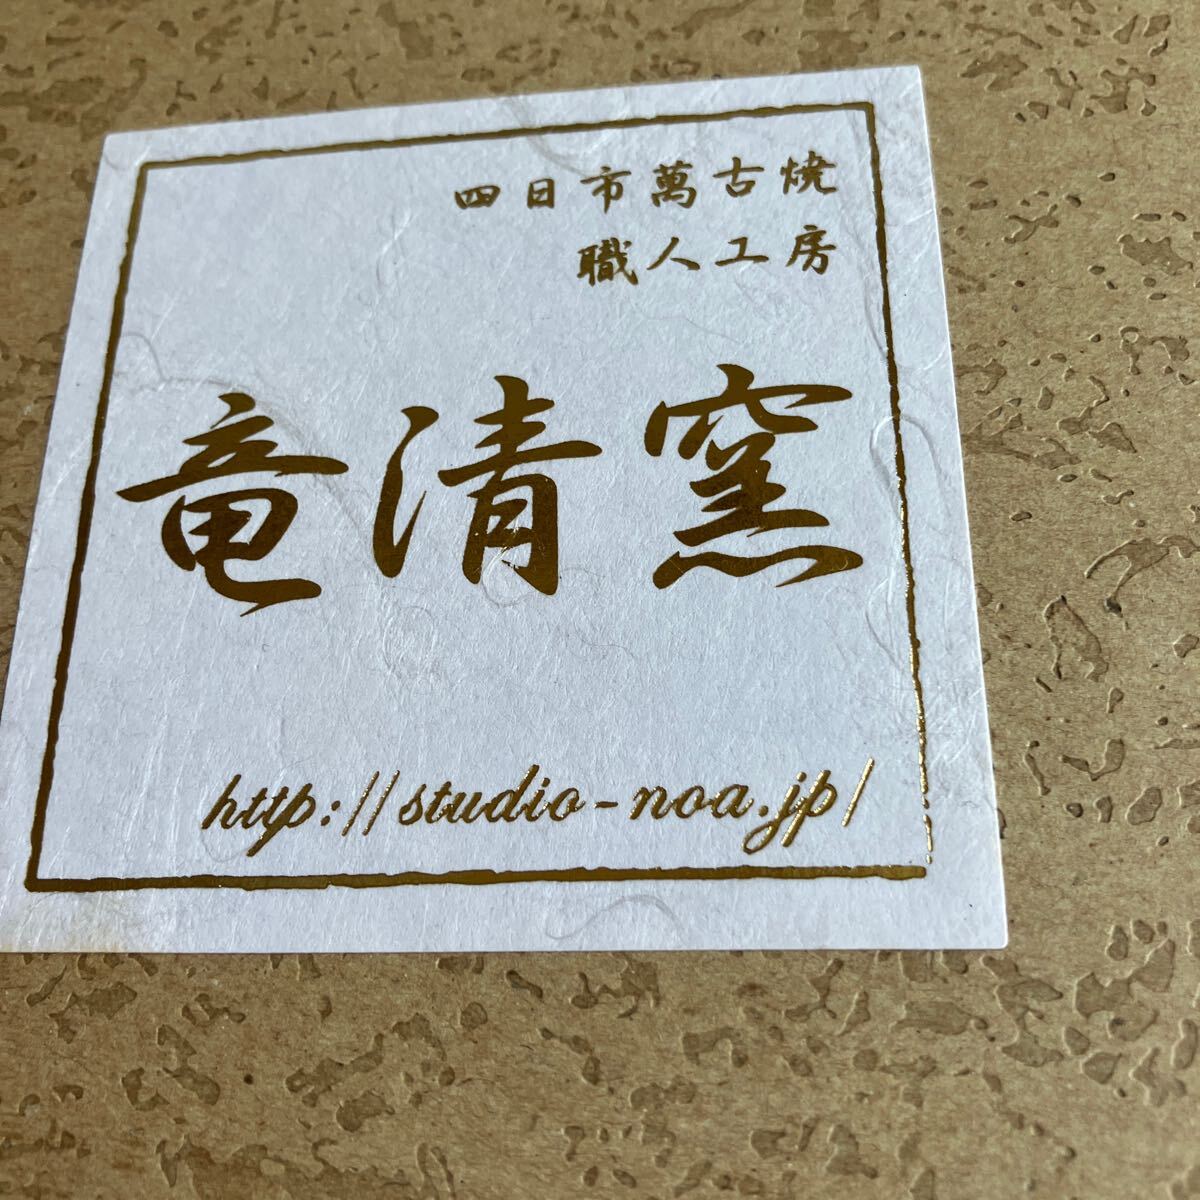 四日市萬古焼
職人工房
竜清窯
http://studio-noa.jp/